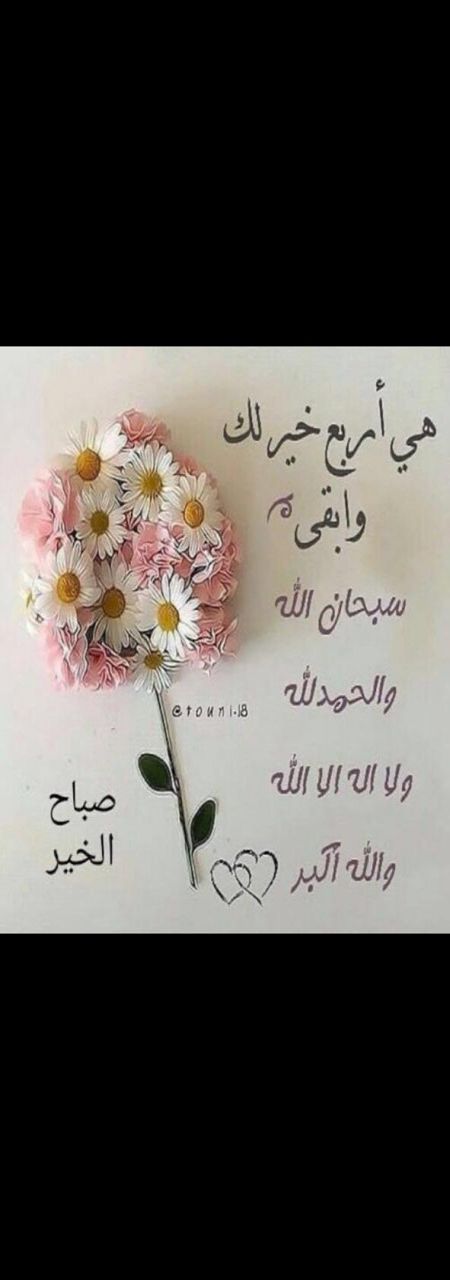 هي أربع خير لك
وابقى
سبحان الله
والحمدلله
@touni.18
ولا اله الا الله
صباح
الخير
والله أكبر